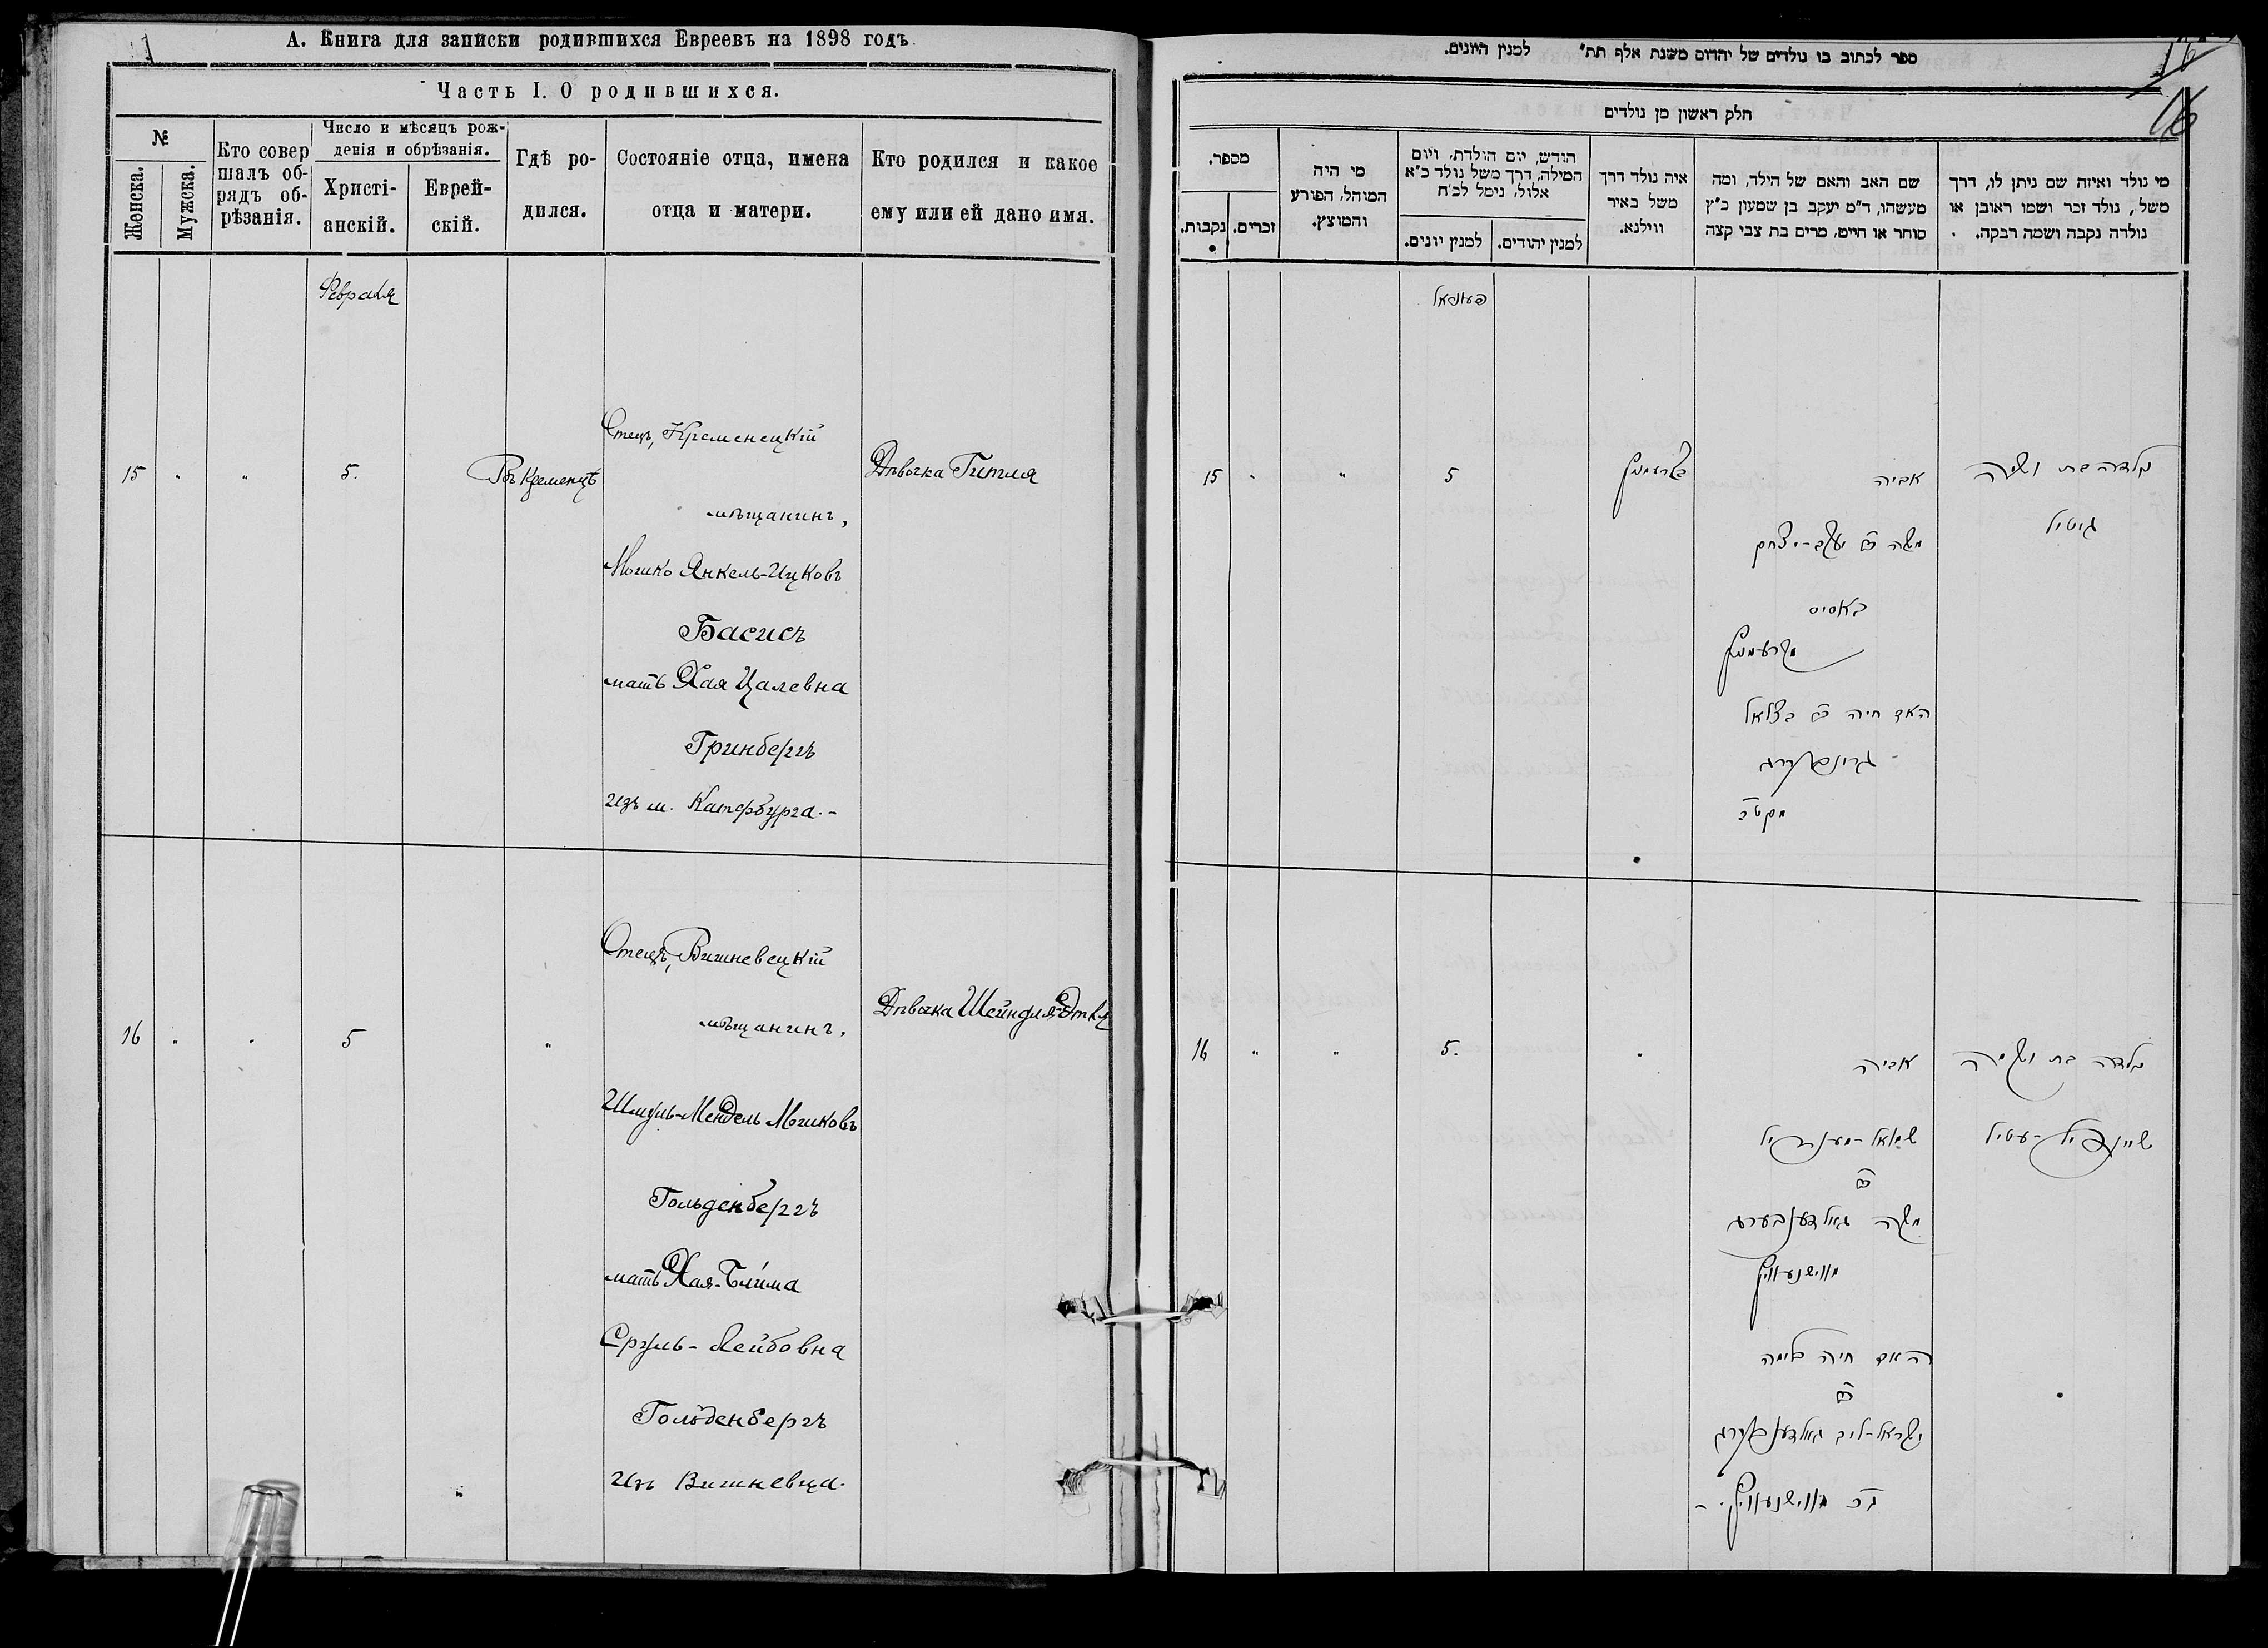 А. Книга для записки родившихся Евреевъ на 1898 годъ.
Часть I. О родившихся.
№
Женска.
Мужска.
Кто совер
шалъ об-
рядъ об-
рѣзанія.
Число и мѣсяцъ рож-
денія и обрѣзанія.
Христі-
анскій.
Еврей-
скій.
Гдѣ ро-
дился.
Состояніе отца, имена
отца и матери.
Кто родился и какое
ему или ей дано имя.
Февраля
15 " " 5. Въ Кременцѣ
Отецъ, Кременецкій
мѣщанинъ,
Мошко Янкель-Ицковъ
Басисъ
мать Хая Цалевна
Гринбергъ
изъ м. Катербурга.-
Дѣвочка Гитля
16 " " 5 "
Отецъ, Вишневецкій
мѣщанинъ,
Шмуль-Мендель Мошковъ
Гольденбергъ
мать Хая-Блима
Сруль-Лейбовна
Гольденбергъ
изъ Вишневца.
Дѣвочка Шейндля-Этля
ספר לכתוב בו נולדים של יהדום משנת אלף תת״ למנין היונים.
16
16
חלק ראשון מן נולדים
מספר.
נקבות.
זכרים.
מי היה
המוהל, הפורע
והמוצץ.
חודש, יום הולדת, ויום
המילה, דרך משל נולד כ״א
אלול, נימל לכ״ח
למנין יוונים.
למנין יהודים.
איה נולד דרך
משל באיר
ווילנא.
שם האב והאם של הילד, ומה
מעשהו, ד״מ יעקב בן שמעון כ״ץ
סוחר או חייט, מרים בת צבי קצה
מי נולד ואיזה שם ניתן לו, דרך
משל, נולד זכר ושמו ראובן או
נולדה נקבה ושמה רבקה.
15 " " 5
אביה
משה ב״ר יעקב-יצחק
באסיס
מקרעמניץ
האם חיה ב״ר בצלאל
גרינבערג
נולדה בת ושמה
גיטיל
16 " " 5. "
אביה
שמואל-מענדיל
ב״ר
משה גאלדענבערג
מווישנעוויץ
האם חיה בלימה
ב״ר
ישראל-ליב גאלדענבערג
מווישנעוויץ.-
נולדה בת ושמה
שיינדיל-עטיל